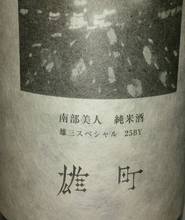 南部美人 純米酒
雄三スペシャル 25BY
雄町